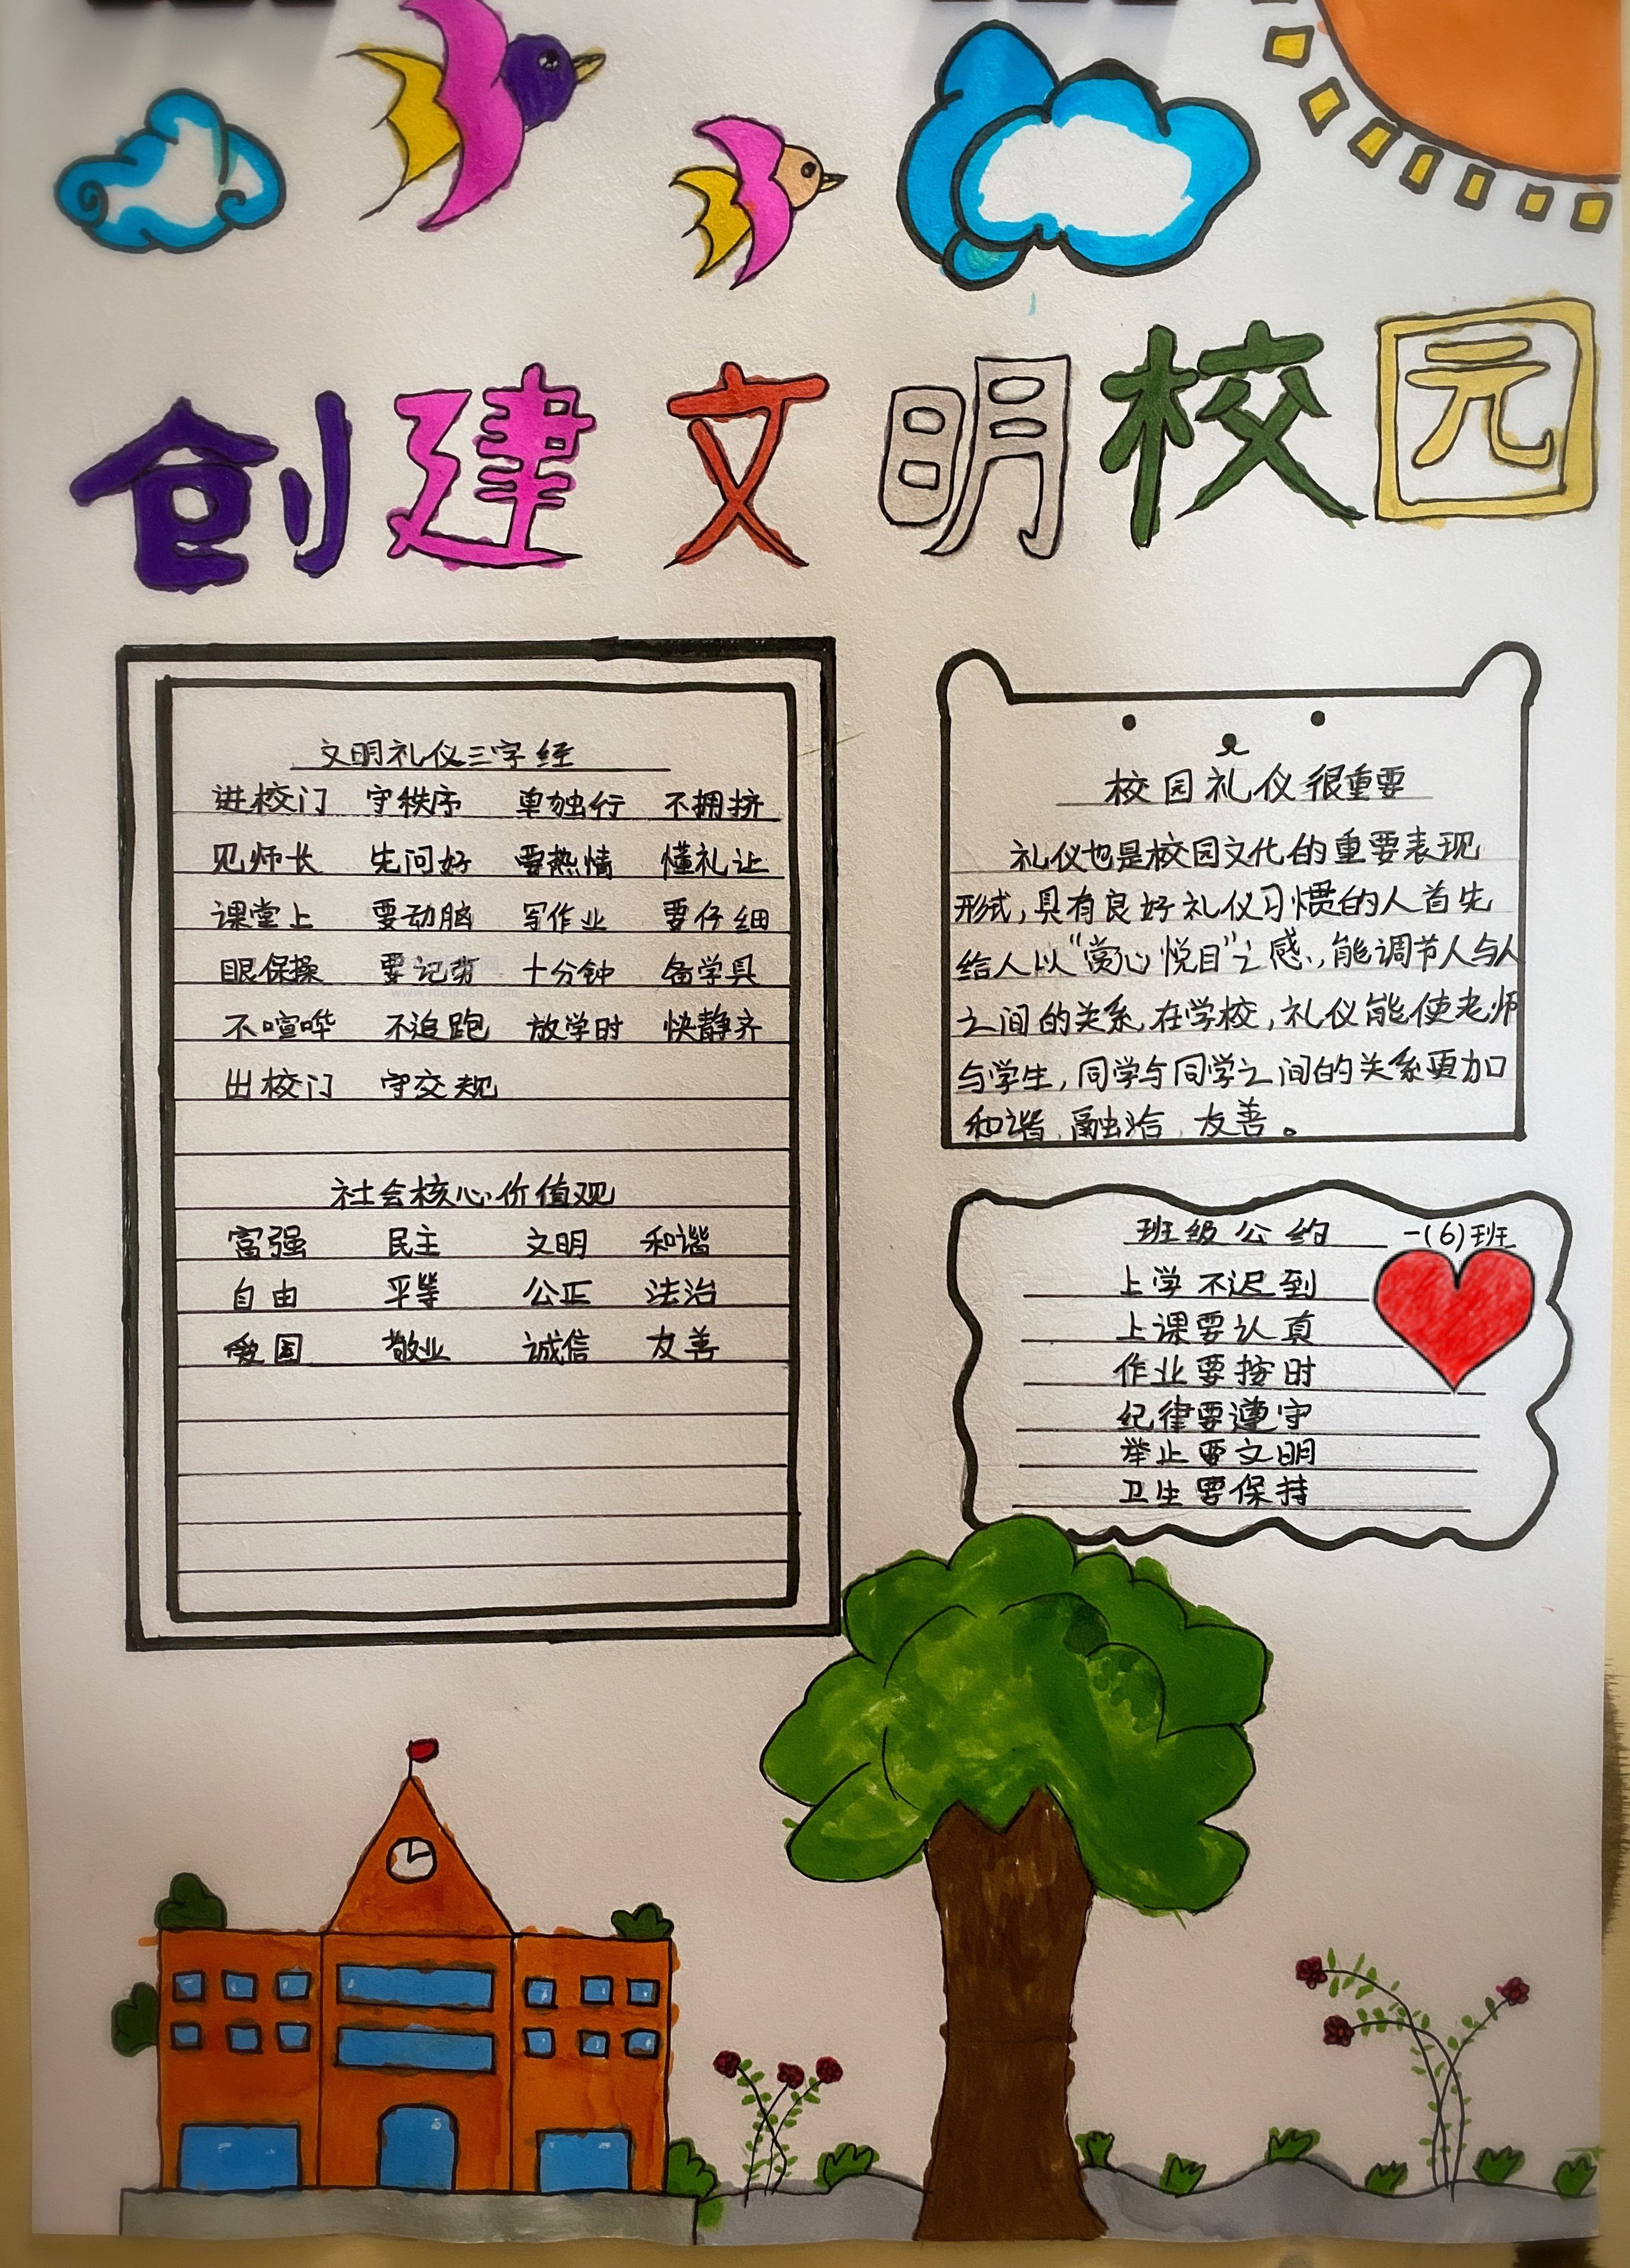 创建文明校园
文明礼仪三字经
进校门 守秩序 单独行 不拥挤
见师长 先问好 要热情 懂礼让
课堂上 要动脑 写作业 要仔细
眼保操 要记劳 十分钟 备学具
不喧哗 不追跑 放学时 快静齐
出校门 守交规
社会核心价值观
富强 民主 文明 和谐
自由 平等 公正 法治
爱国 敬业 诚信 友善
校园礼仪很重要
礼仪也是校园文化的重要表现
形式,具有良好礼仪习惯的人首先
给人以“赏心悦目”之感,能调节人与人
之间的关系,在学校,礼仪能使老师
与学生,同学与同学之间的关系更加
和谐、融洽、友善。
班级公约 一(6)班
上学不迟到
上课要认真
作业要按时
纪律要遵守
举止要文明
卫生要保持